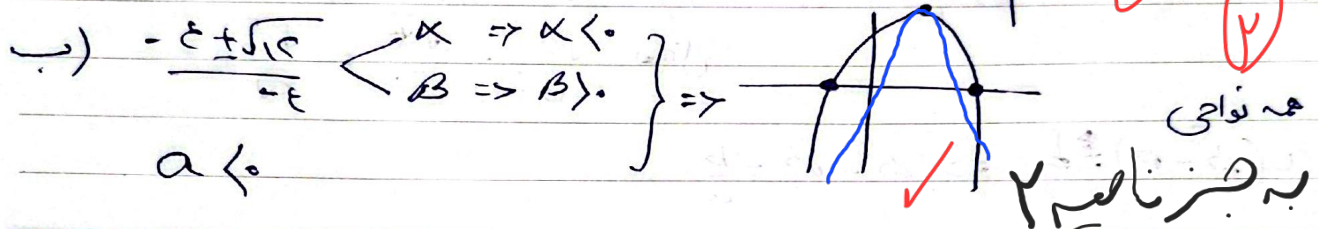 ب) (-۴±√۳۲)/-۴ < α => α<۰
β => β>۰ } =>
a<۰
۲
همه نواحی
به جز ناحیه ۲